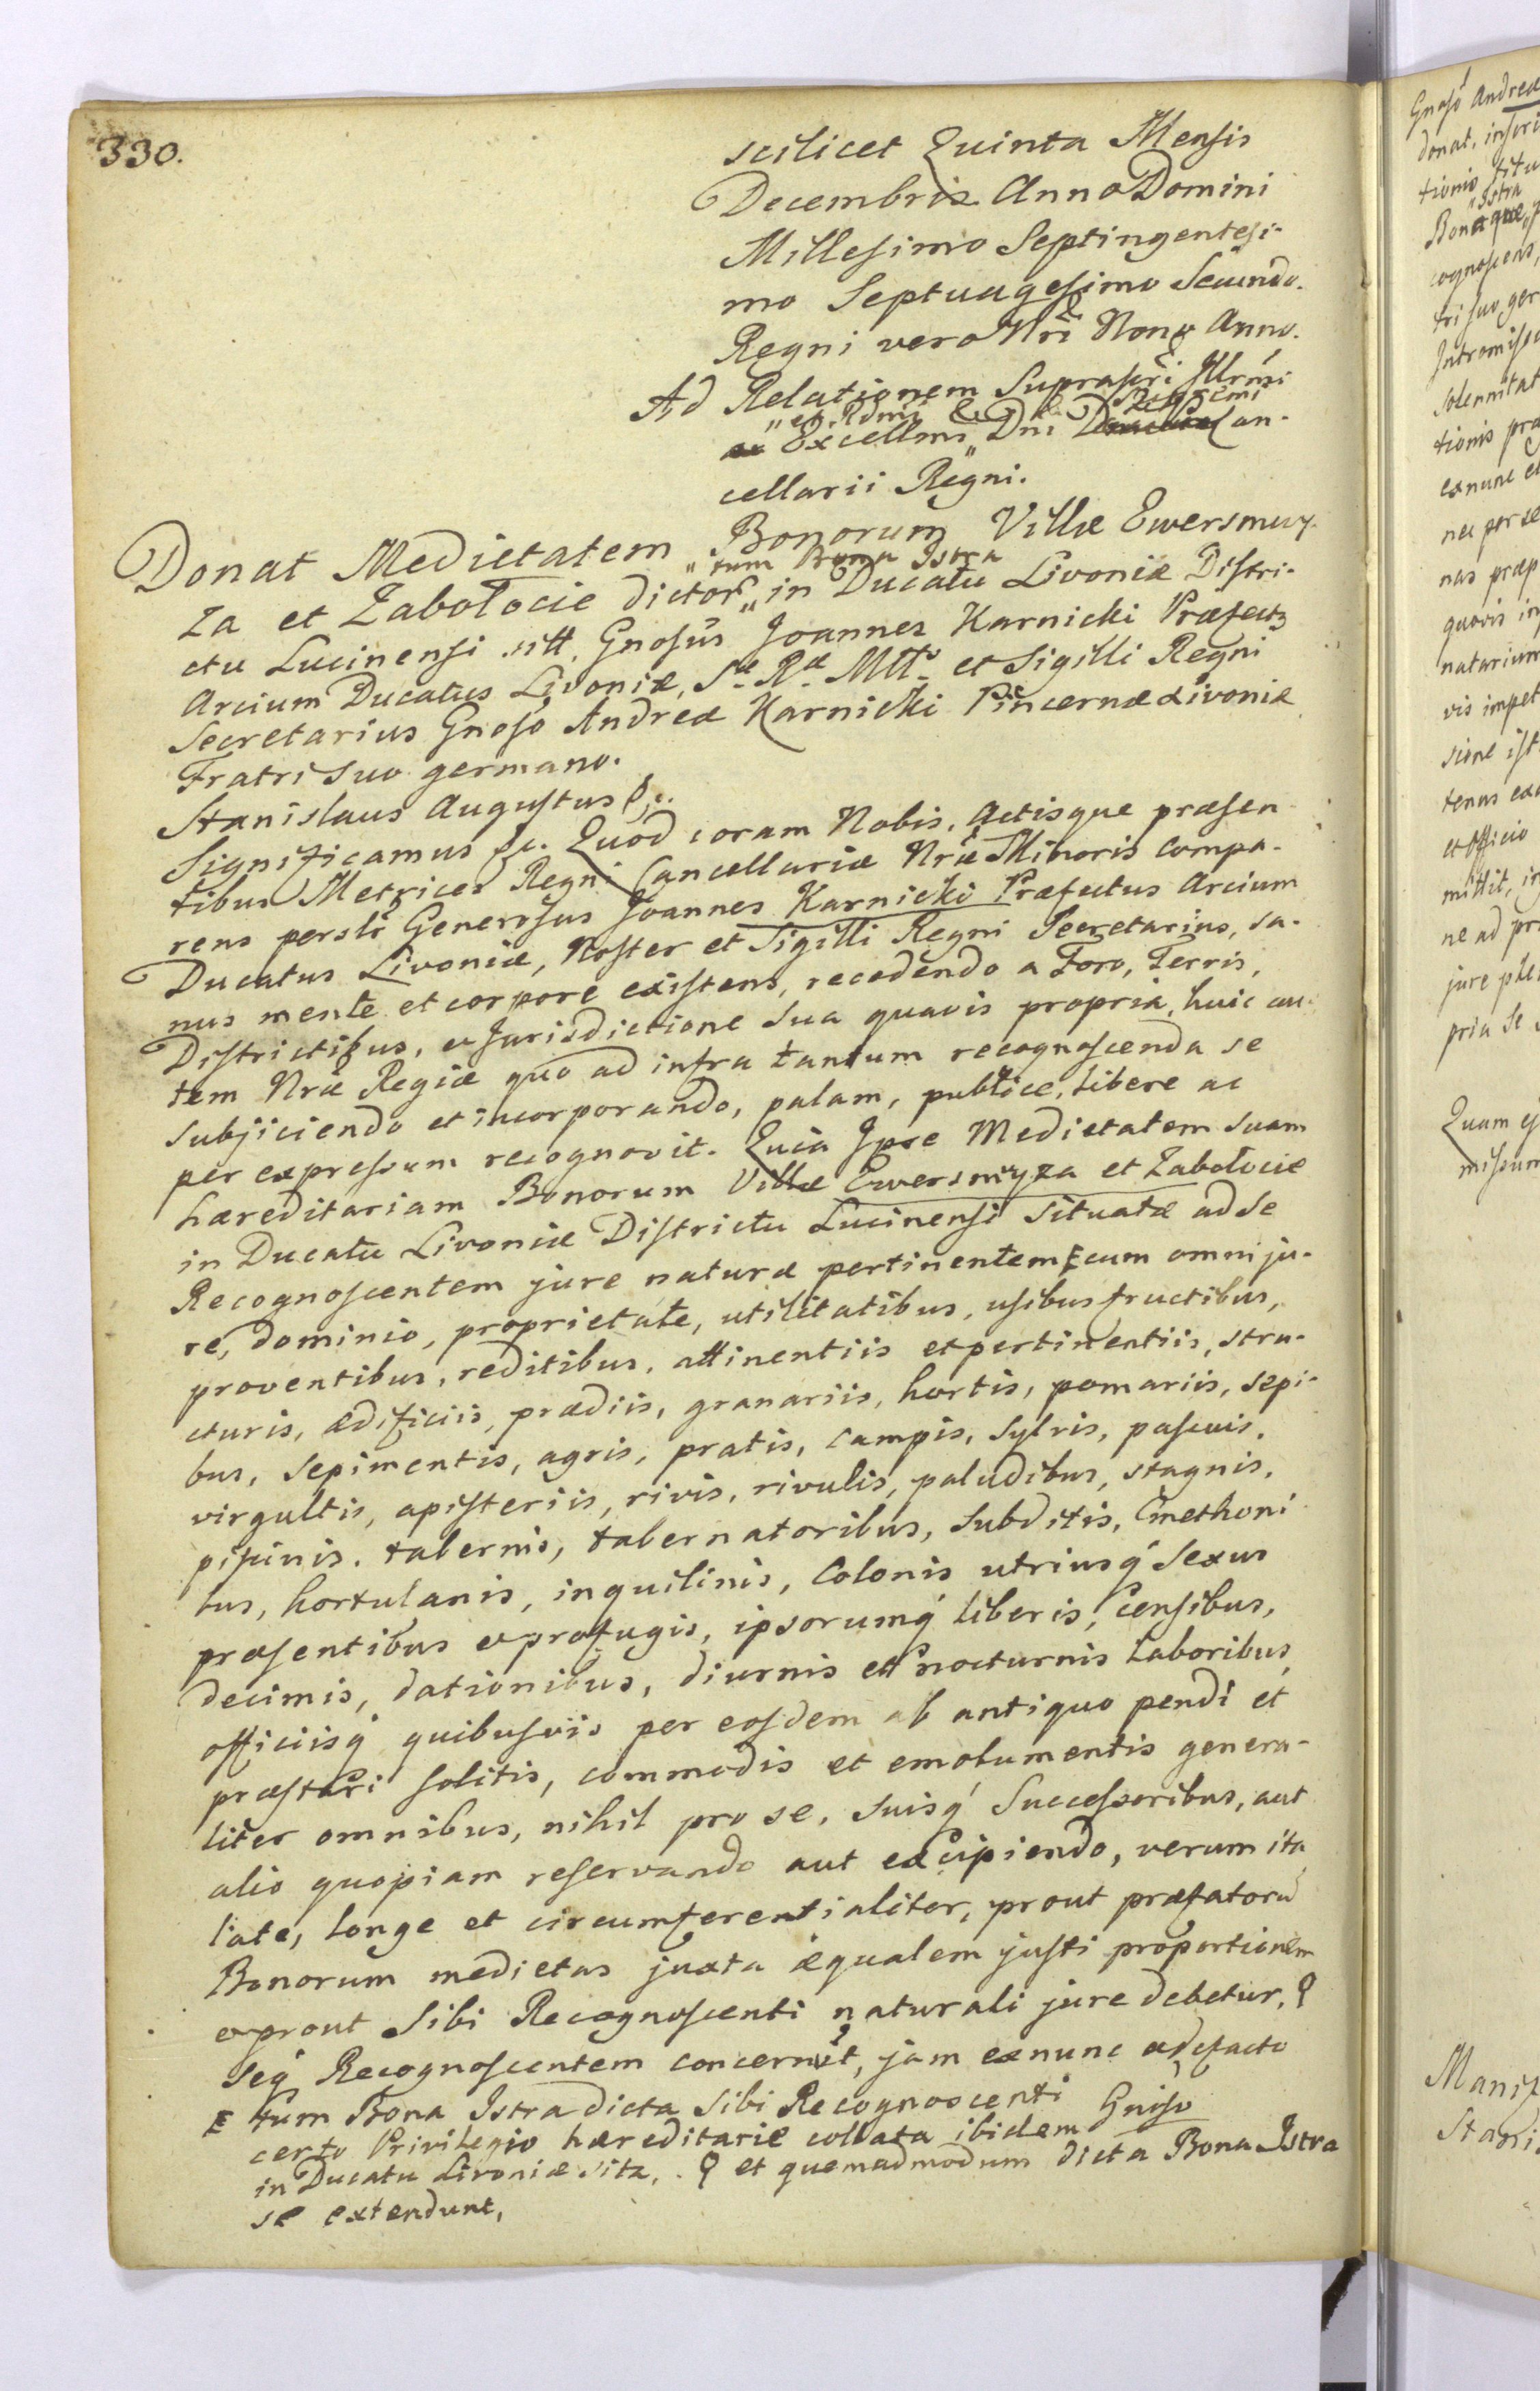 330.
scilicet Quinta Mensis
Decembris Anno Domini
Millesimo Septingentesi-
mo Septuagesimo Secundo.
Regni vero Nri Nono Anno.
Ad Relationem Suprascri Illrmi
"et Rdmi
Excellmi " Dni Can-
cellarii Regni.
Donat Medietatem Bonorum Villæ Ewersmuy-
"tum Bona Istra
za et Zabołocie dictor " in Ducatu Livoniæ Distri-
ctu Lucinensi sitt. Gnosus Joannes Karnicki Præfectus
Arcium Ducatus Livoniæ, S. R. Mtt. et Sigilli Regni
Secretarius Gnoso Andreæ Karnicki Pincernæ Livoniæ
Fratri suo germano.
Stanislaus Augustus &c.
Significamus &c. Quod coram Nobis, Actisque præsen
tibus Metrices Regni Cancellariæ Nræ Minoris compa-
rens personlr Generosus Joannes Karnicki Præfectus Arcium
Ducatus Livoniæ, Noster et Sigilli Regni Secretarius, sa-
nus mente et corpore existens, recedendo a Foro, Terris,
Districtibus, et Jurisdictione sua quavis propria, huic au-
tem Nræ Regiæ quo ad infra tantum recognoscenda se
subjiciendo et incorporando, palam, publice, libere ac
per expressum recognovit. Quia Ipse Medietatem suam
hæreditariam Bonorum Villæ Ewersmuyza et Zabołocie
in Ducatu Livoniæ Districtu Lucinensi situatæ ad se
Recognoscentem jure naturæ pertinentem E cum omni ju-
re, dominio, proprietate, utilitatibus, usibus fructibus,
proventibus, reditibus, attinentiis et pertinentiis, stru-
cturis, ædificiis, prædiis, granariis, hortis, pomariis, sepi-
bus, sepimentis, agris, pratis, campis, sylvis, pascuis,
virgultis, apisteriis, rivis, rivulis, paludibus, stagnis,
piscinis, tabernis, tabernatoribus, subditis, Cmethoni
bus, hortulanis, inquilinis, Colonis utriusq sexus
præsentibus et profugis, ipsorumq liberis, censibus,
decimis, dationibus, diurnis et nocturnis Laboribus,
officiisq quibusvis per eosdem ab antiquo pendi et
præstari solitis, commodis et emolumentis genera-
liter omnibus, nihil pro se, suisq Successoribus, aut
alio quopiam reservando aut excipiendo, verum ita
late, longe et circumferentialiter, prout præfatoru
Bonorum medietas juxta æqualem justi proportionem
et prout sibi Recognoscenti naturali jure debetur, ϙ
seq Recognoscentem concernit, jam ex nunc et de facto
E tum Bona Istra dicta sibi Recognoscenti Gnoso
certo Privilegio hæreditarie collata ibidem
in Ducatu Livoniæ sita, . ϙ et quemadmodum dicta Bona Istra
se extendunt,
Gnoso Andreæ
donat, inscri
tionis titu
"Istra
Bona
cognoscens,
tri suo ger
Intromiss
solennitat
tionis præ
ex nunc et
nec per se
nas præp
quovis in
natarium
vis impet
sione ist
tenus
et officio
mittit, in
ne ad pr
jure ple
pria se
Quam ej
missum
Manif
Stanis